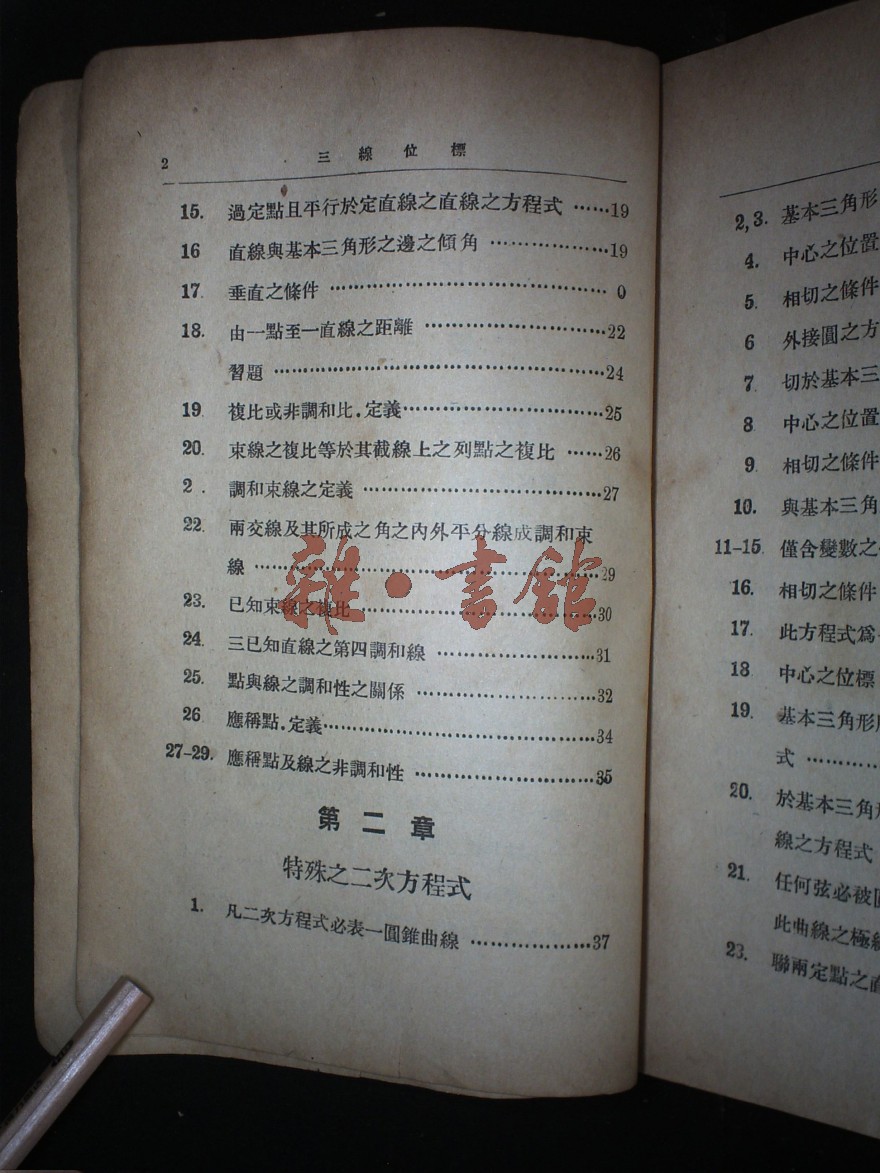 2 三線位標
15. 過定點且平行於定直線之直線之方程式 ……19
16 直線與基本三角形之邊之傾角 ………………19
17. 垂直之條件 ……………………………………… 0
18. 由一點至一直線之距離 …………………………22
習題 ………………………………………………24
19 複比或非調和比.定義……………………………25
20. 束線之複比等於其截線上之列點之複比 ……26
2 . 調和束線之定義 …………………………………27
22. 兩交線及其所成之角之內外平分線成調和束
線 …………………………………………………29
23. 已知束線之複比 …………………………………30
24. 三已知直線之第四調和線 ………………………31
25. 點與線之調和性之關係 …………………………32
26 應稱點.定義………………………………………34
27-29. 應稱點及線之非調和性 …………………………35
第二章
特殊之二次方程式
1. 凡二次方程式必表一圓錐曲線 ………………37
雜·書館
2,3. 基本三角形
4. 中心之位置
5. 相切之條件
6 外接圓之方
7. 切於基本三
8 中心之位置
9. 相切之條件
10. 與基本三角
11-15. 僅含變數之
16. 相切之條件
17. 此方程式爲
18 中心之位標
19. 基本三角形
式 …………
20. 於基本三角形
線之方程式
21. 任何弦必被
此曲線之極
23. 聯兩定點之直